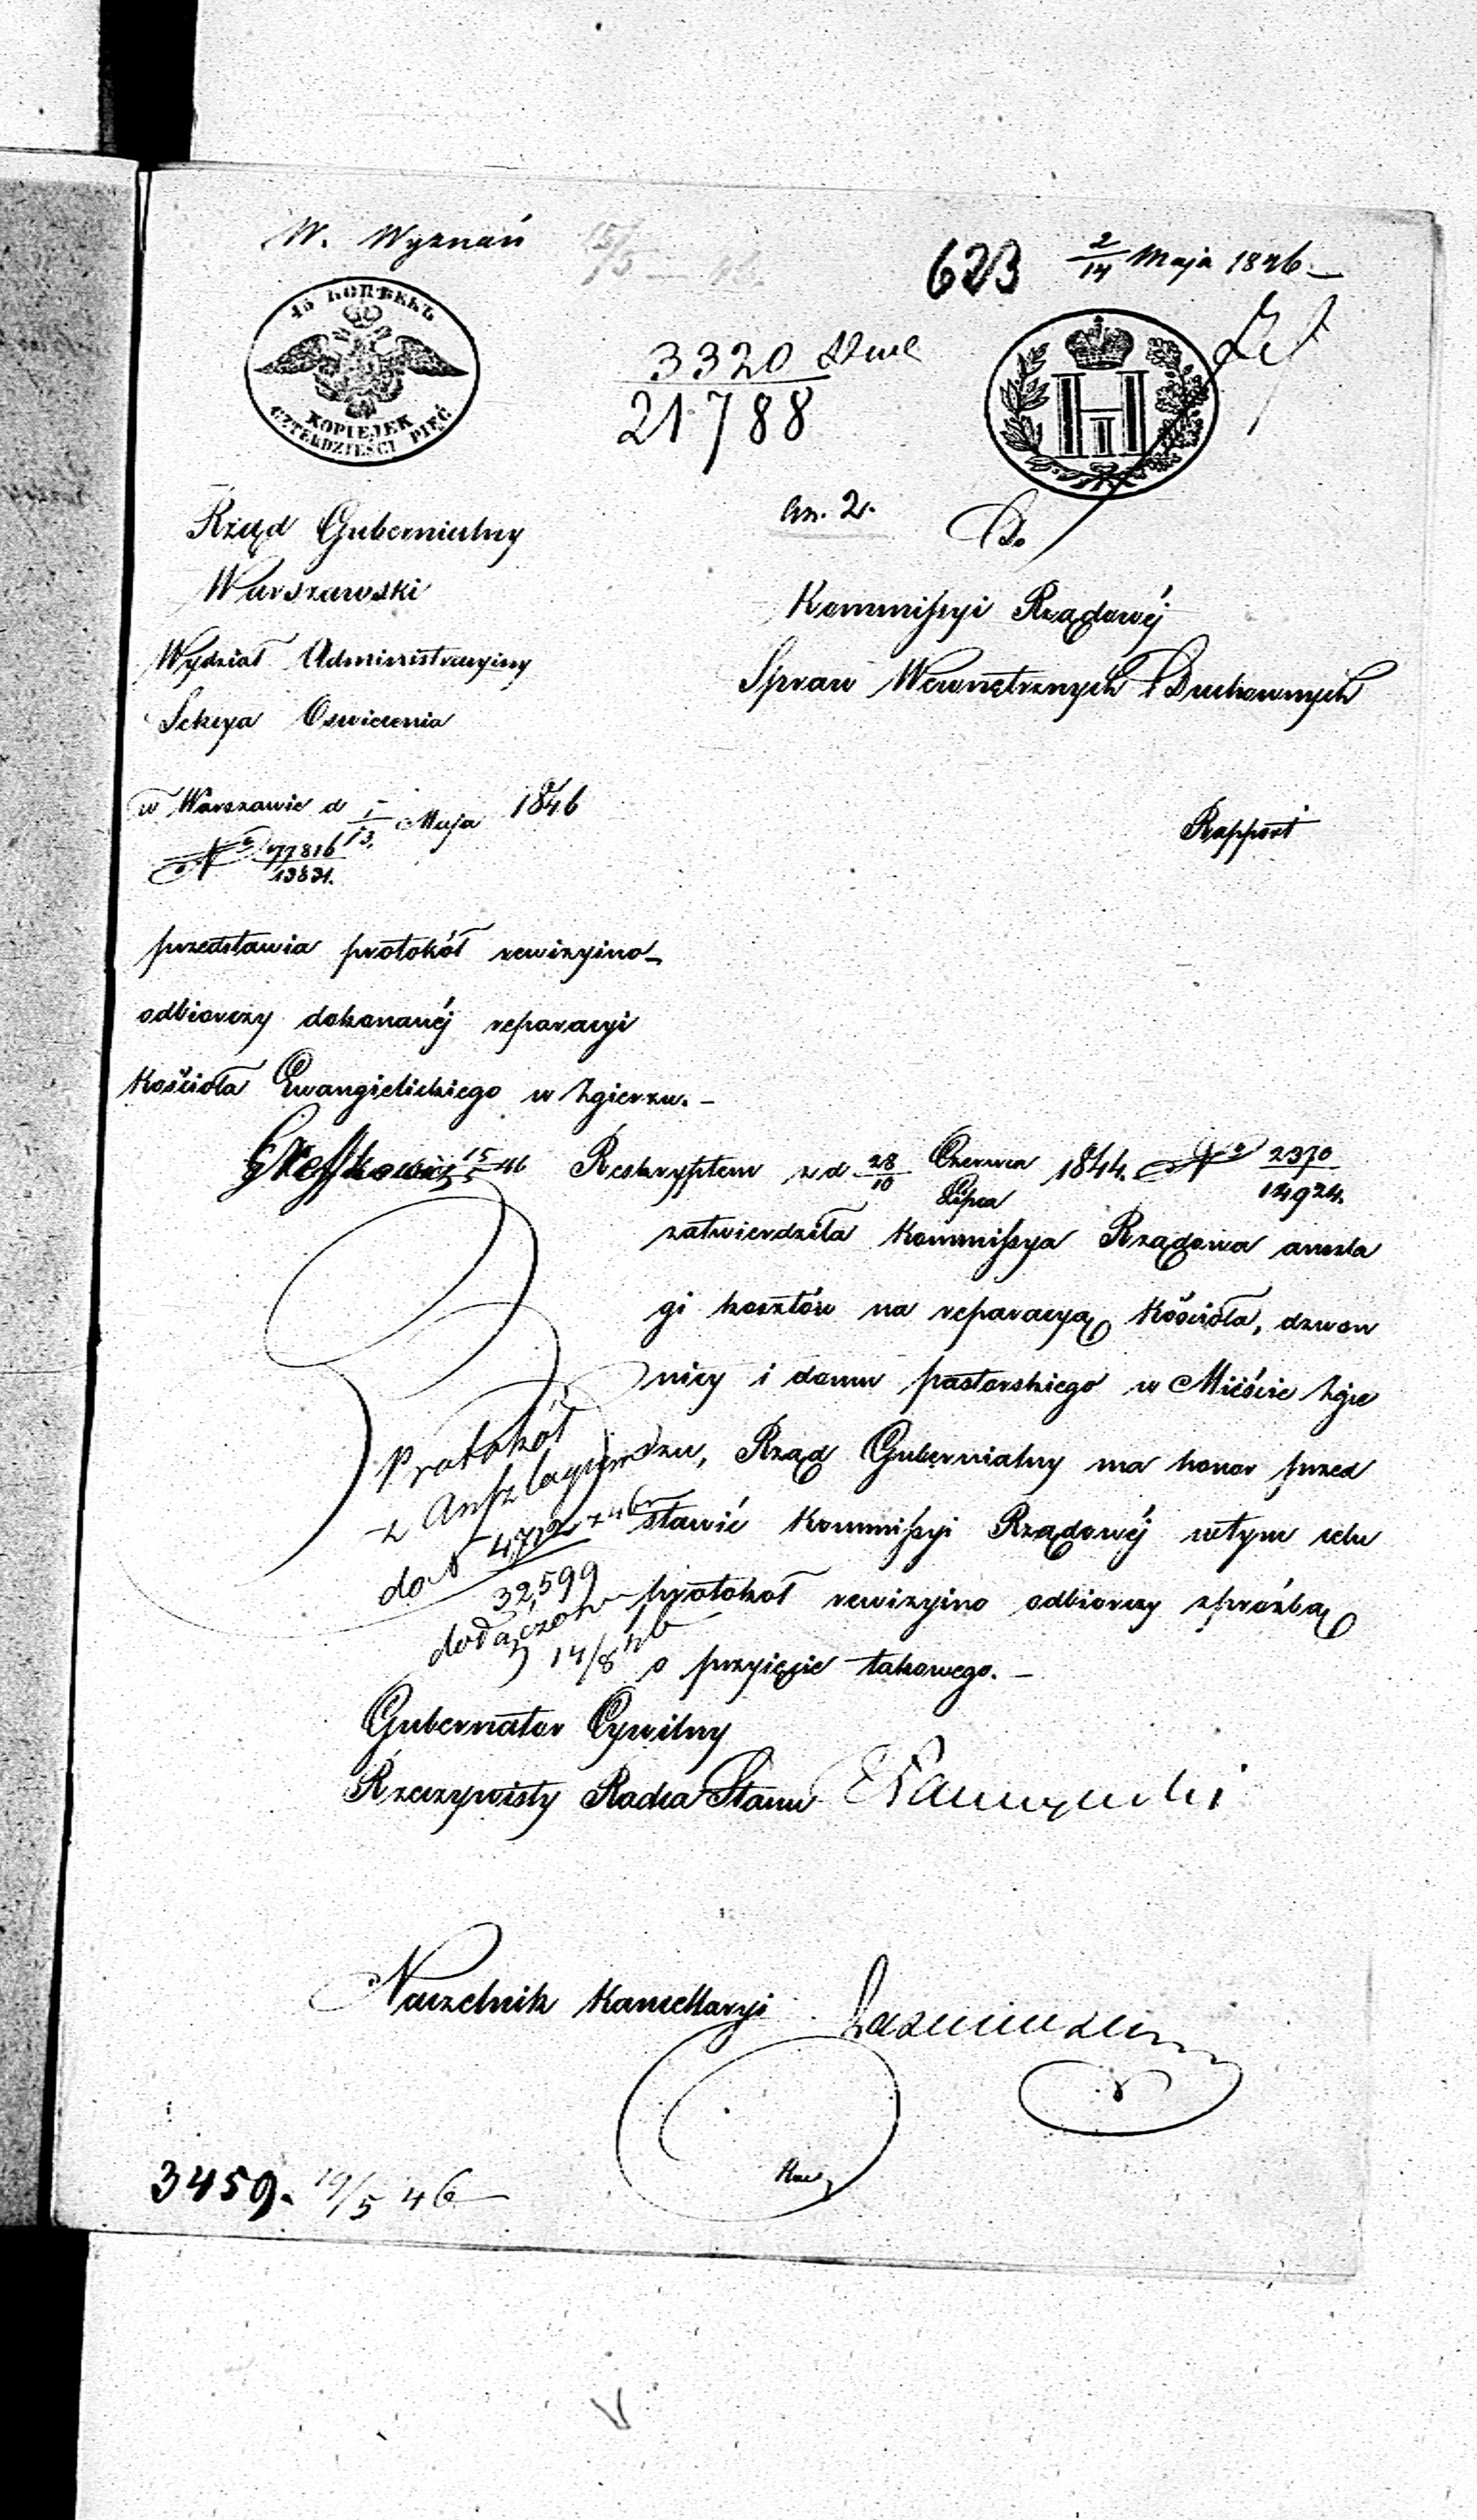 W. Wyznań
15/5 46.
623
2/14 Maja 1846.
45 КОПѢЕКЪ
KOPIEJEK
CZTERDZIEŚCI PIĘĆ
3320
21788
an. 2.
Rząd Gubernialny
Warszawski
Wydział Administracyjny
Sekcya Oswiecenia
w Warszawie d 1/13. Maja 1846
77816
13831.
Do
Kommißyi Rządowéj
Spraw Wewnętrznych i Duchownych
Rapport
przedstawia protokół rewizyino-
odbiorczy dokonanéj reparacyi
Kościoła Ewangielickiego w Zgierzu. -
15/5 46
Reskryptem z d 28/10 Czerwca/Lipca 1844. N 2370/14924.
zatwierdziła Kommißya Rządowa anszla
gi kosztów na reparacyą Kościoła, dzwon
nicy i domu pastorskiego w Mieście Zgie
rzu, Rząd Gubernialny ma honor przed
stawić Kommißyi Rządowéj wtym celu
protokoł rewizyino odbiorczy zprożbą
o przyięcie takowego. -
Protokół
z Anszlagiem
do N 4712/32,599 z 46
dołączono
14/8 46
Gubernator Cywilny
Rzeczywisty Radca Stanu
Naczelnik Kancellaryi
3459. 19/5 46